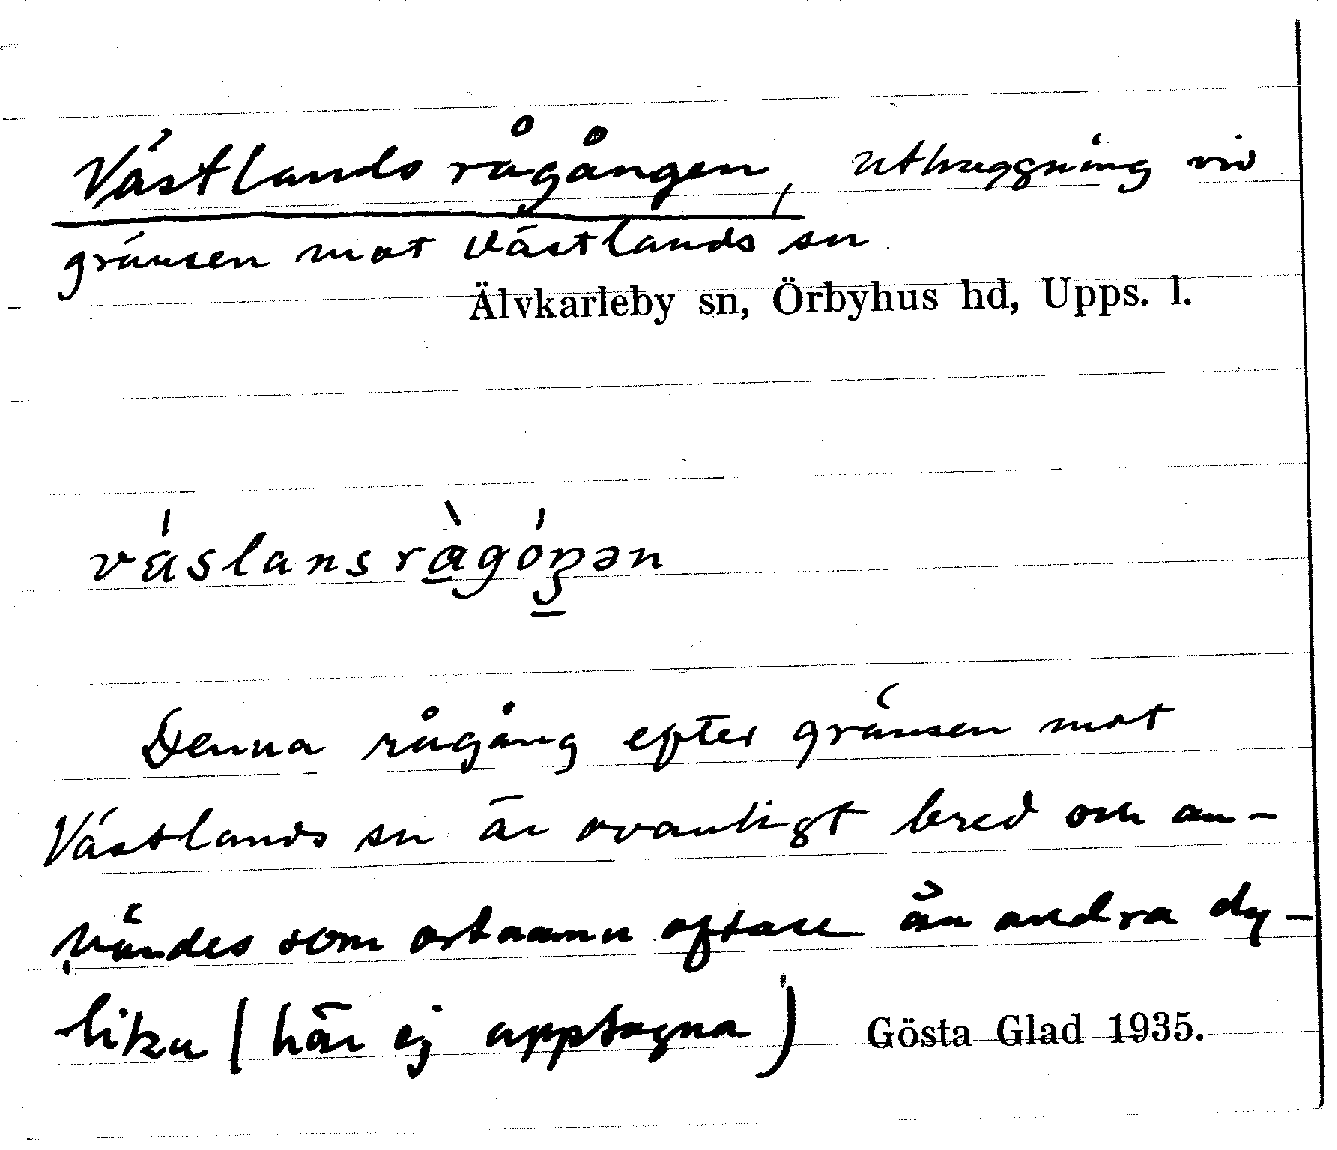 Västlandsrågången, uthuggning vid
gränsen mot Västlands sn
Älvkarleby sn, Örbyhus hd, Upps. l.
vá̍slansràgóŋ̱ən
Denna rågång efter gränsen mot
Västlands sn är ovanligt bred och an-
vändes som ortnamn oftare än andra dy-
lika (här ej upptagna)
Gösta Glad 1935.